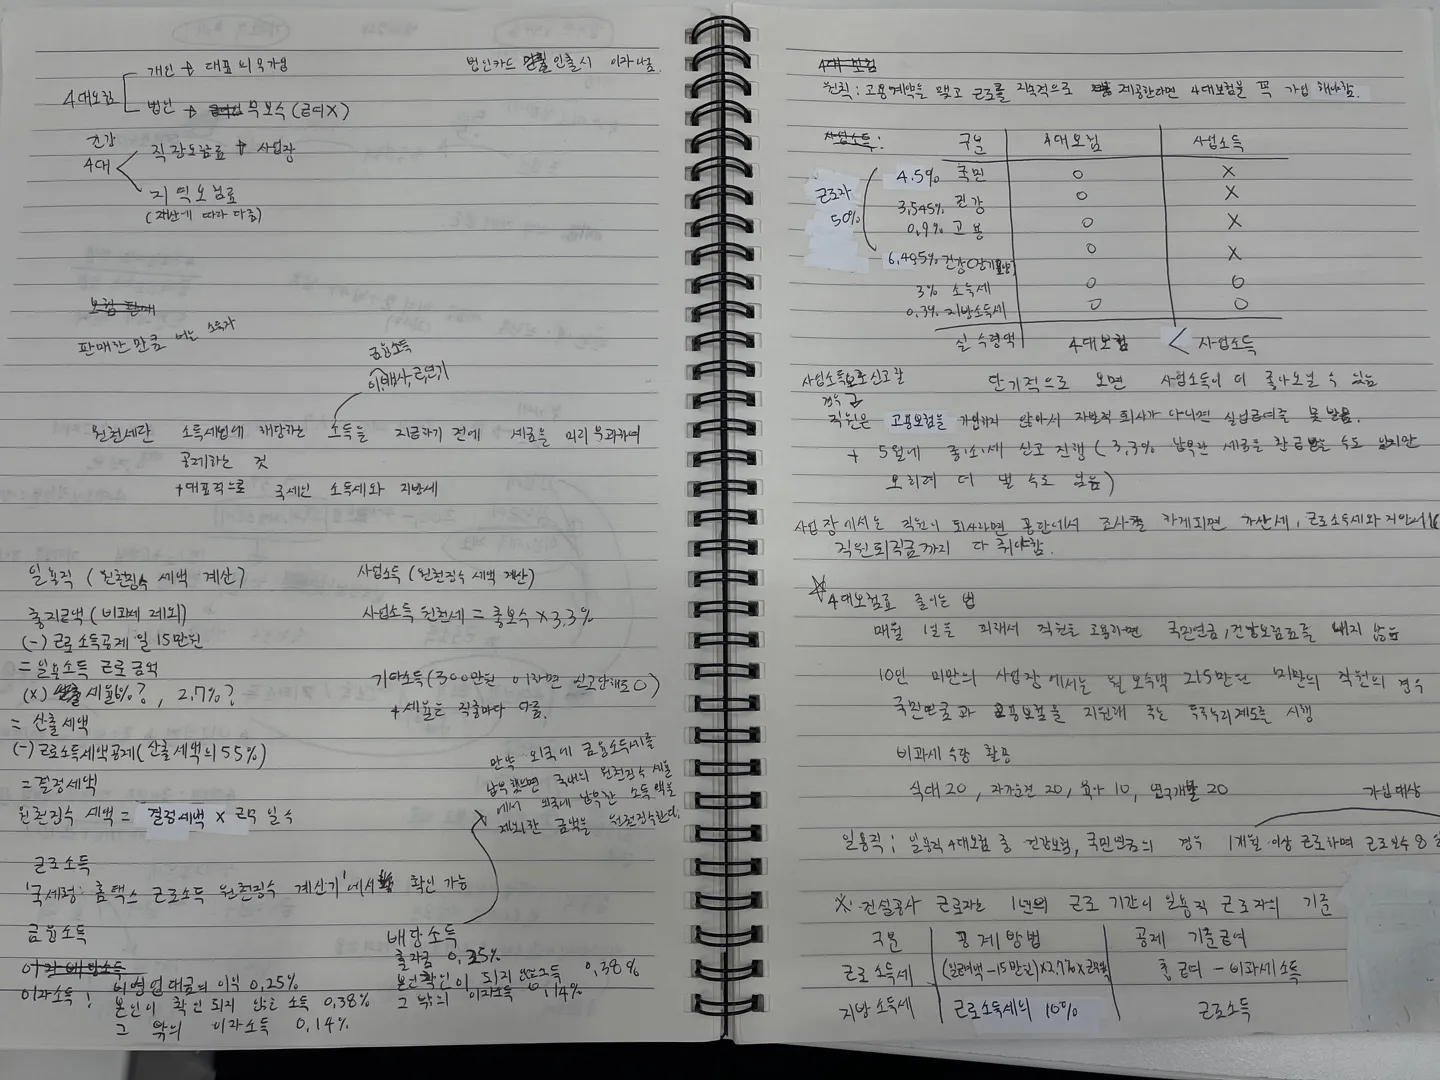 개인 → 대표 의무가입
4대보험
법인 → 무보수 (급여X)
법인카드 인출시 이자 남.
건강
4대
직장보험료 → 사업장
지역보험료
(재산에 따라 다름)
보험 판매
판매한 만큼 버는 소득자
금융소득
이,배,사,근,연,기
원천세란 소득세법에 해당하는 소득을 지급하기 전에 세금을 미리 부과하여
공제하는 것
+ 대표적으로 국세인 소득세와 지방세
일용직 (원천징수 세액 계산)
총지급액 (비과세 제외)
(-) 근로소득공제 일 15만원
= 일용소득 근로금액
(x) 세율6%? , 2.7%?
= 산출세액
(-) 근로소득세액공제 (산출세액의 55%)
= 결정세액
원천징수 세액 = 결정세액 x 근무 일수
사업소득 (원천징수 세액 계산)
사업소득 원천세 = 총보수 x 3.3%
기타소득 (300만원 이하면 신고안해도 O)
+ 세율은 직종마다 다름.
만약 외국에 금융소득세를
납부했으면 국내의 원천징수 세율
에서 외국에 납부한 소득액을
제외한 금액을 원천징수한다.
근로소득
'국세청: 홈택스 근로소득 원천징수 계산기'에서 확인 가능
금융소득
이자 배당소득
이자소득 : 비영업대금의 이익 0.25%
본인이 확인되지 않은 소득 0.38%
그 밖의 이자소득 0.14%
배당소득
출자금 0.25%
본인확인이 되지 않은소득 0.38%
그 밖의 이자소득 0.14%
4대 보험
원칙 : 고용계약을 맺고 근로를 지속적으로 제공한다면 4대보험을 꼭 가입 해야함.
사업소득 :
구분 4대보험 사업소득
근로자
50%
4.5% 국민 O X
3.545% 건강 O X
0.9% 고용 O X
6.495% 건강(장기요양) O X
3% 소득세 O O
0.3% 지방소득세 O O
실 수령액 4대보험 < 사업소득
사업소득으로 신고할
경우
단기적으로 보면 사업소득이 더 좋아보일 수 있음
직원은 고용보험을 가입하지 않아서 자발적 퇴사가 아니면 실업급여를 못 받음.
+ 5월에 종.소.세 신고 진행 (3.3% 납부한 세금을 환급받을 수도 있지만
오히려 더 낼 수도 있음)
사업장에서는 직원이 퇴사하면 공단에서 조사를 하게되면 가산세, 근로소득세와 지방세
직원퇴직금까지 다 줘야함.
☆ 4대보험료 줄이는 법
매월 1일을 피해서 직원을 고용하면 국민연금, 건강보험료를 내지 않음
10인 미만의 사업장에서는 월 보수액 215만원 미만의 직원의 경우
국민연금과 고용보험을 지원해 주는 두루누리제도를 시행
비과세 수당 활용
식대 20, 자가운전 20, 육아 10, 연구개발 20
가입대상
일용직 : 일용직 4대보험 중 건강보험, 국민연금의 경우 1개월 이상 근로하며 근로일수 8일
※ 건설공사 근로자는 1년의 근로 기간이 일용직 근로자의 기준
구분 공제방법 공제 기준급여
근로소득세 (일급여액 - 15만원)x2.7%x근무일 총급여 - 비과세소득
지방소득세 근로소득세의 10% 근로소득